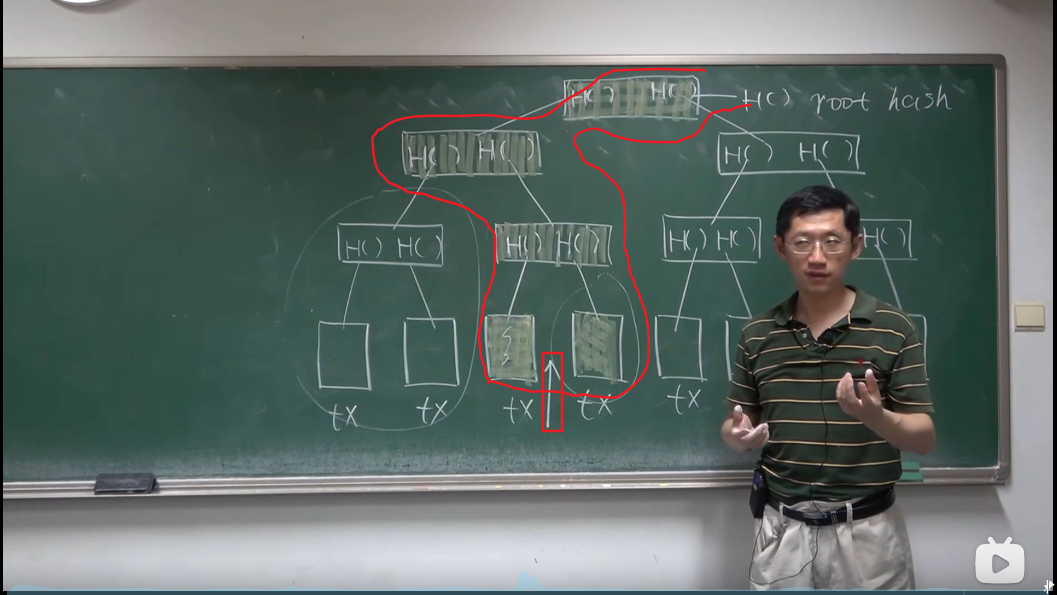 H( ) H( ) H( ) root hash
H( ) H( ) H( ) H( )
H( ) H( ) H( ) H( ) H( ) H( ) H( )
tx tx tx tx tx